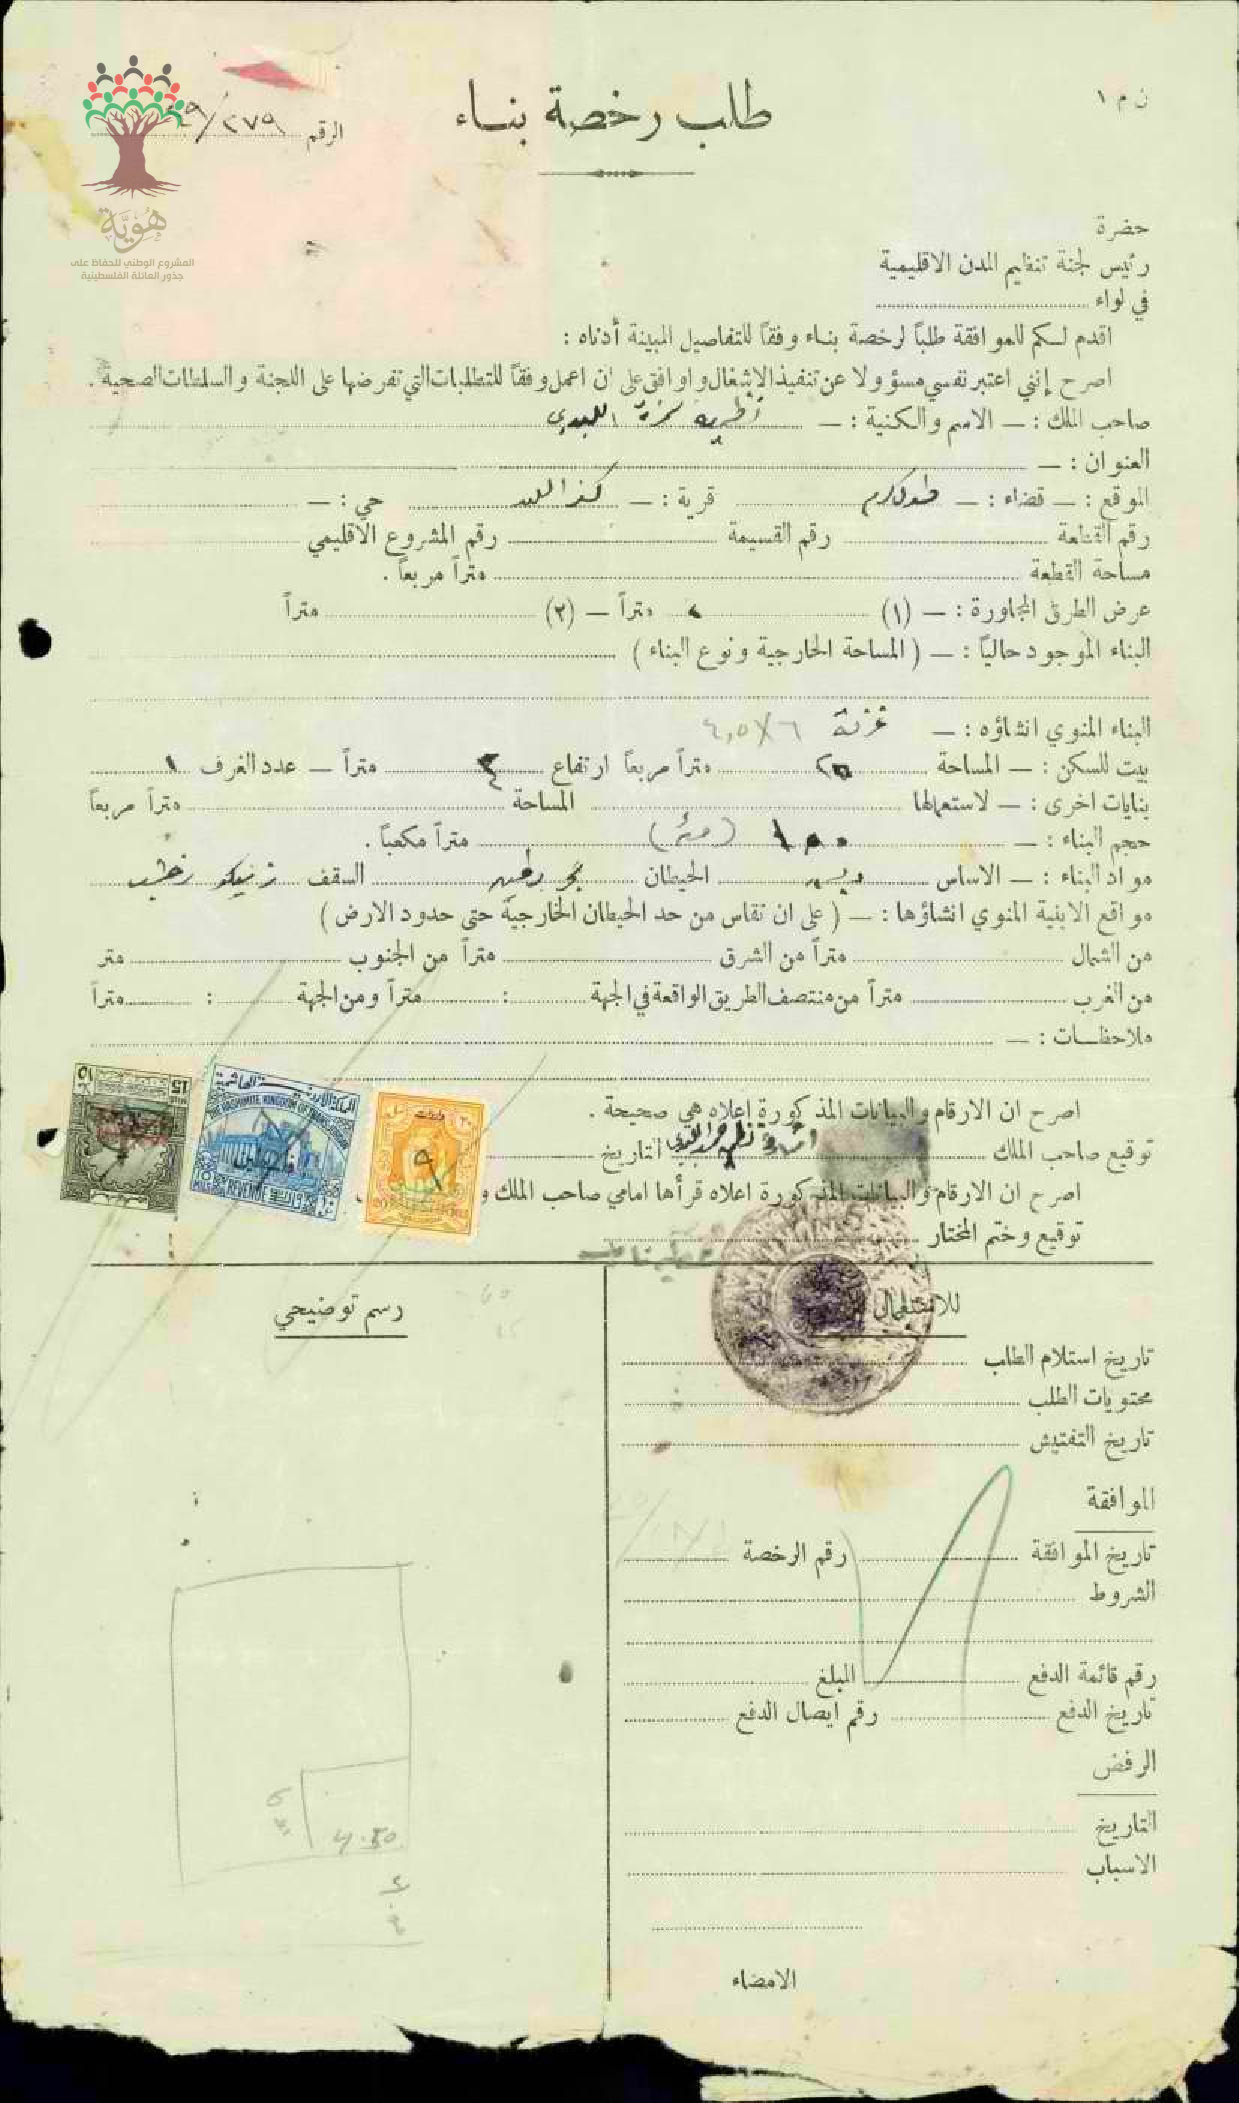 ن م ١
طلب رخصة بناء
الرقم ٢٧٩/٤٩
هُوِيَّة
المشروع الوطني للحفاظ على
جذور العائلة الفلسطينية
حضرة
رئيس لجنة تنظيم المدن الاقليمية
في لواء
اقدم لكم للموافقة طلباً لرخصة بناء وفقاً للتفاصيل المبينة أدناه :
اصرح إنني اعتبر نفسي مسؤولا عن تنفيذ الاشغال واوافق على ان اعمل وفقاً للمتطلبات التي تفرضها على اللجنة والسلطات الصحية .
صاحب الملك : — الاسم والكنية : — اللبدي
العنوان : —
الموقع : — قضاء : — طولكرم قرية : — كفر اللبد حي : —
رقم القطعة رقم القسيمة رقم المشروع الاقليمي
مساحة القطعة متراً مربعاً .
عرض الطرق المجاورة : — (١) متراً — (٢) متراً
البناء الموجود حالياً : — ( المساحة الخارجية ونوع البناء )
البناء المنوي انشاؤه : — غرفة ٦ X ٤,٥
بيت للسكن : — المساحة متراً مربعاً ارتفاع متراً — عدد الغرف ١
بنايات اخرى : — لاستعمالها المساحة متراً مربعاً
حجم البناء : — ١٠٠ متراً مكعباً .
مواد البناء : — الاساس الحيطان السقف زينكو
مواقع الابنية المنوي انشاؤها : — ( على ان تقاس من حد الحيطان الخارجية حتى حدود الارض )
من الشمال متراً من الشرق متراً من الجنوب متر
من الغرب متراً من منتصف الطريق الواقعة في الجهة : متراً ومن الجهة : متراً
ملاحظات : —
اصرح ان الارقام والبيانات المذكورة اعلاه هي صحيحة .
توقيع صاحب الملك التاريخ
اصرح ان الارقام والبيانات المذكورة اعلاه قرأها امامي صاحب الملك و
توقيع وختم المختار
15
١٥
المملكة الاردنية الهاشمية
THE HASHEMITE KINGDOM OF
فلسطين
REVENUE
للاستعمال
تاريخ استلام الطلب
محتويات الطلب
تاريخ التفتيش
الموافقة
تاريخ الموافقة رقم الرخصة
الشروط
رقم قائمة الدفع المبلغ
تاريخ الدفع رقم ايصال الدفع
الرفض
التاريخ
الاسباب
الامضاء
رسم توضيحي
4.50